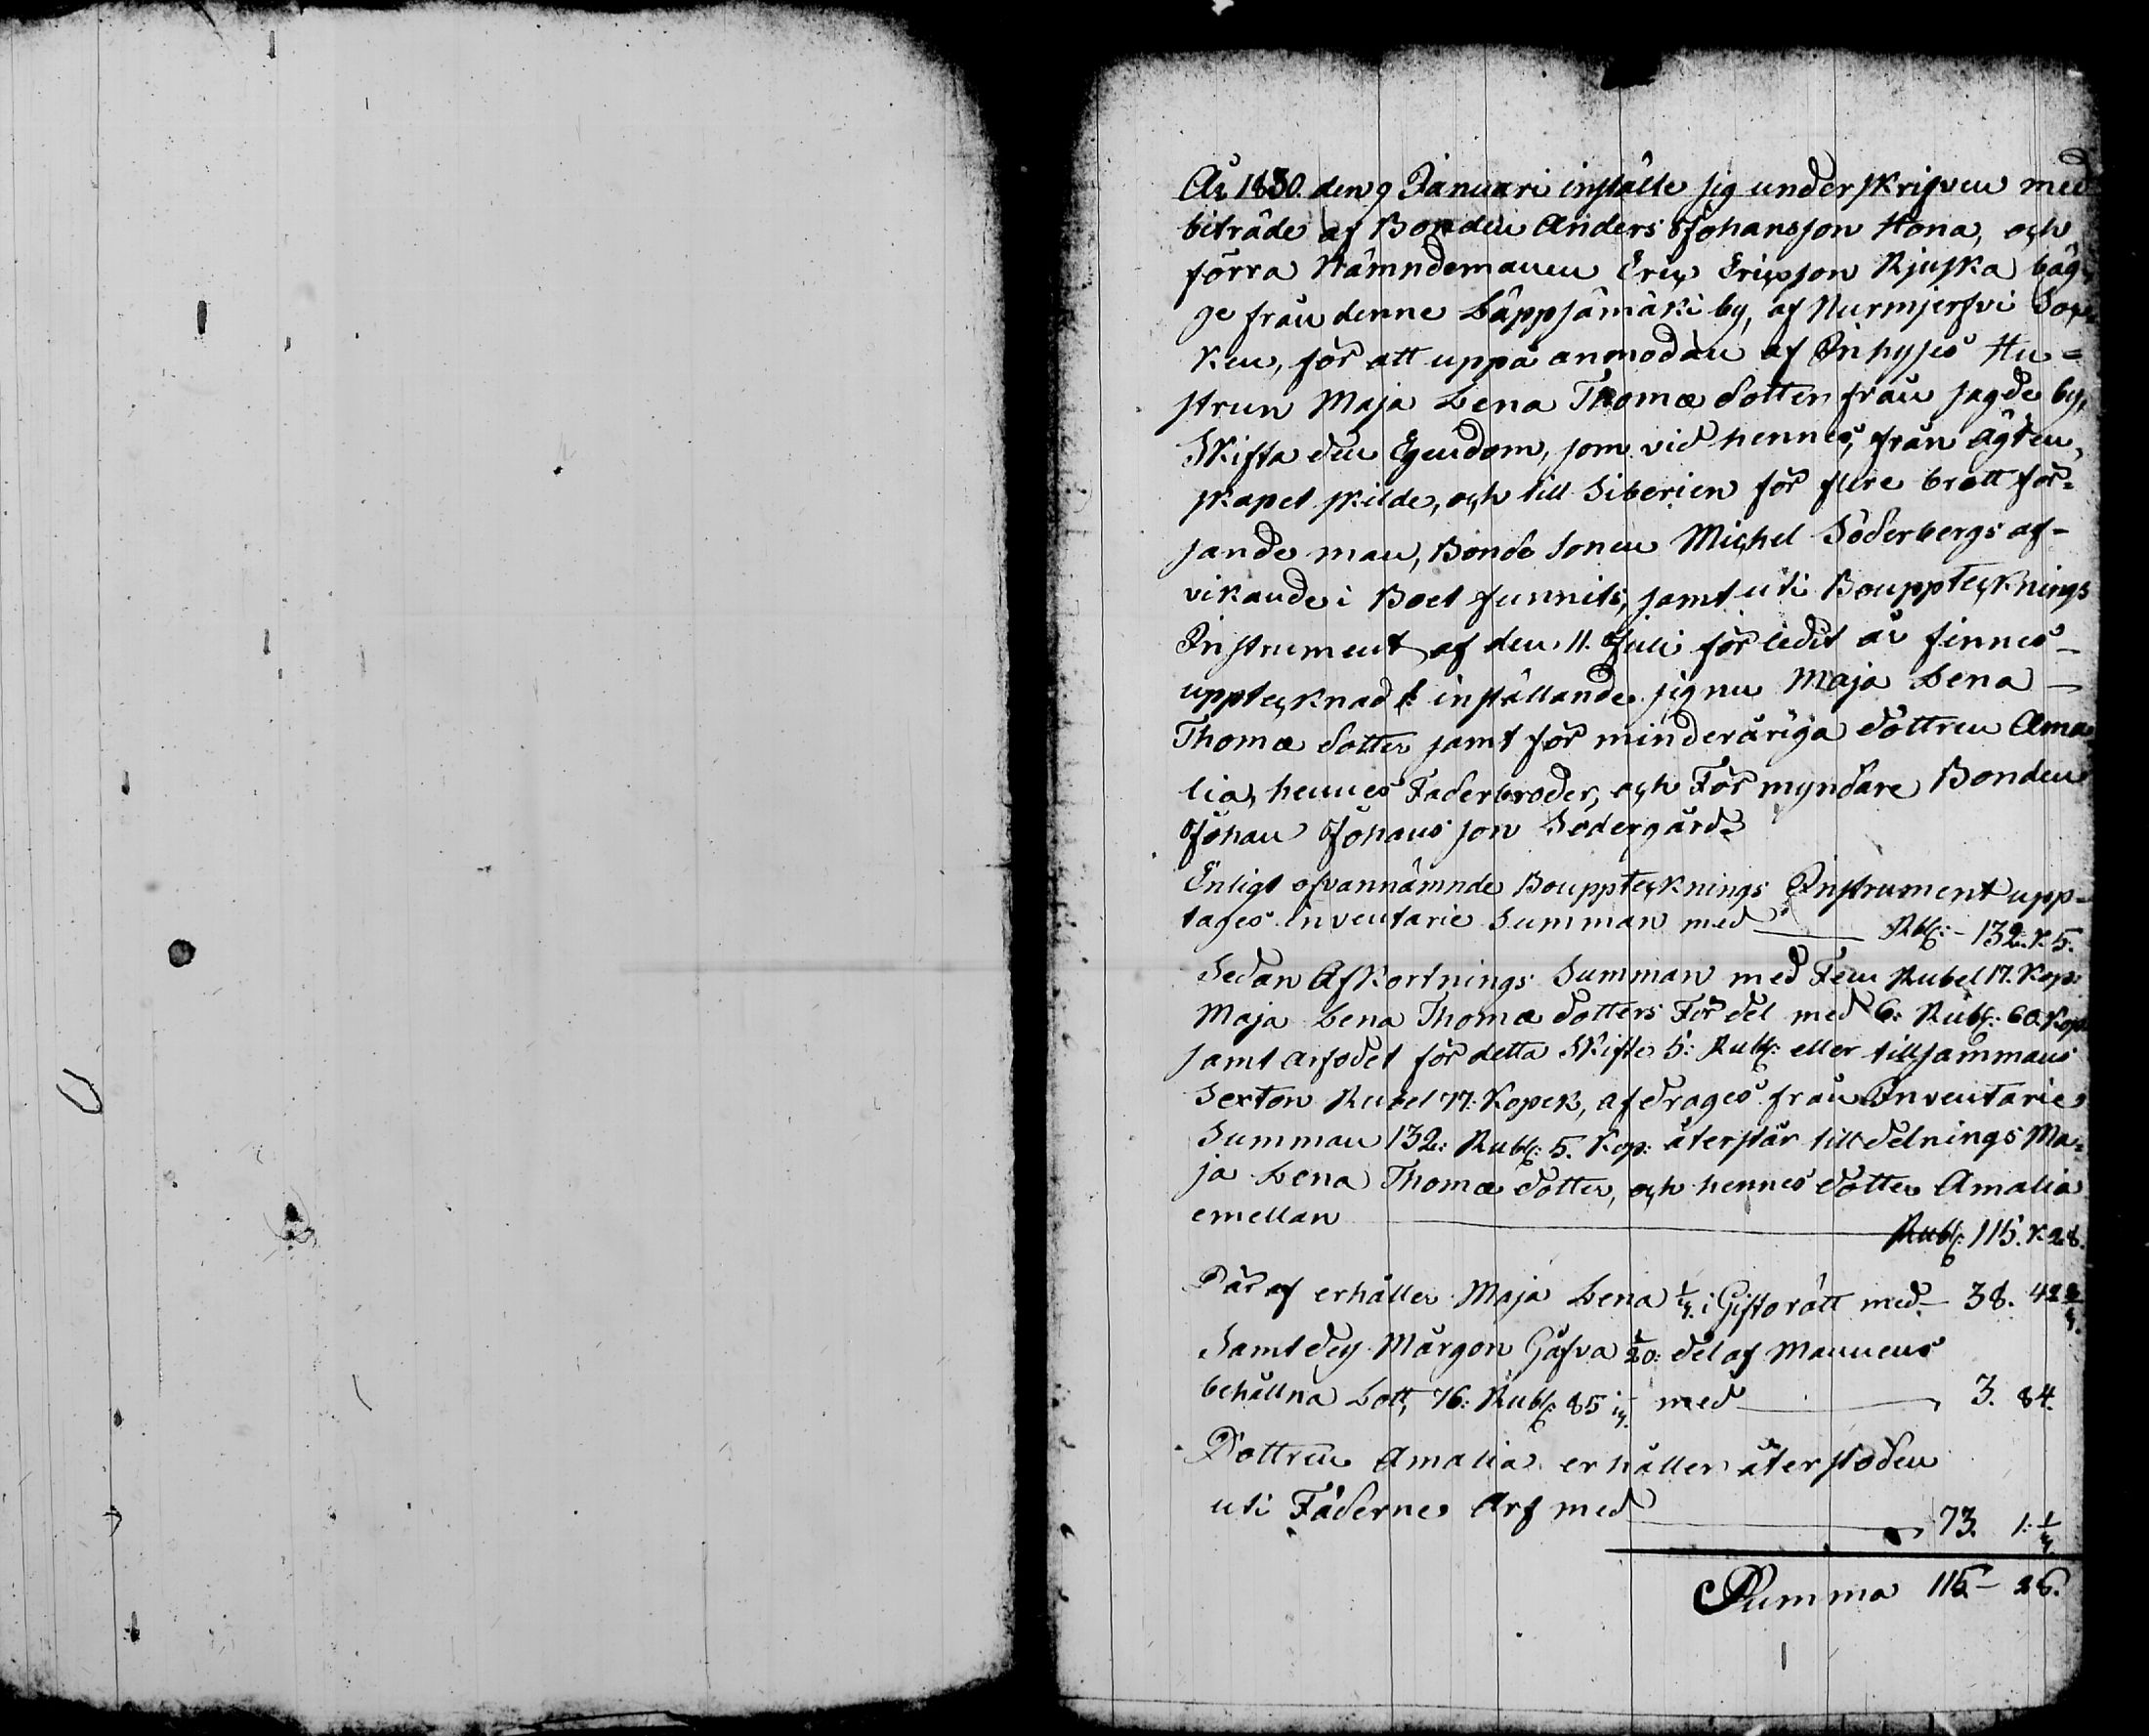 År 1830. den 9 Januari instälte sig underskrifven med
biträde af Bonden Anders Johansson Hona, och
förra Nämndemannen Eric Ericsson Kjuska bäg-
ge från denne Läppsämäki by, af Nurmjerfvi Sok-
ken, för att uppå anmodan af Inhyses Hu=
strun Maja Lena Thomæ dotter från sagde by,
Skifta den Egendom, som vid hennes, från ägten-
skapet skilde, och till Siberien för flere brott för=
sande man, Bonde Sonen Michel Söderbergs af-
vikande i Boet funnits, samt uti Bouppteknings
Instrument af den 11. Juli förledit år finnes
upptecknad: inställande sig nu Maja Lena
Thomæ dotter samt för minderåriga dottren Ama
lia, hennes Faderbroder, och Förmyndare Bonden
Johan Johansson Södergård.
Enligt ofvannämnde Bouppteknings Instrument upp-
tages inventarie Summan med Rbl: 132. k. 5.
Sedan Afkortnings Summan med Fem Rubel 17. Kop:
Maja Lena Thomæ dotters Fördel med 6: Rubl: 60. Kop:
samt arfodet för detta Skifte 5: Rubl: eller tillsammans
Sexton Rubel 77. Kopek, afdrages från Inventarie
Summan 132: Rubl: 5. Kop: återstår till delnings Ma=
ja Lena Thomæ dotter, och hennes dotter Amalia
emellan Rubl: 115. K 28.
Där af erhåller Maja Lena 1/3. i Giftorätt med 38. 42 2/3.
Samt dey Mårgon Gåfva 1/20: del af Mannens
behållna Lott, 76: Rubl: 85 1/3. med 3. 84.
Dottren Amalia erhåller återstoden
uti Fäderne Arf med 73. 1: 1/3.
Summa 115.- 28.